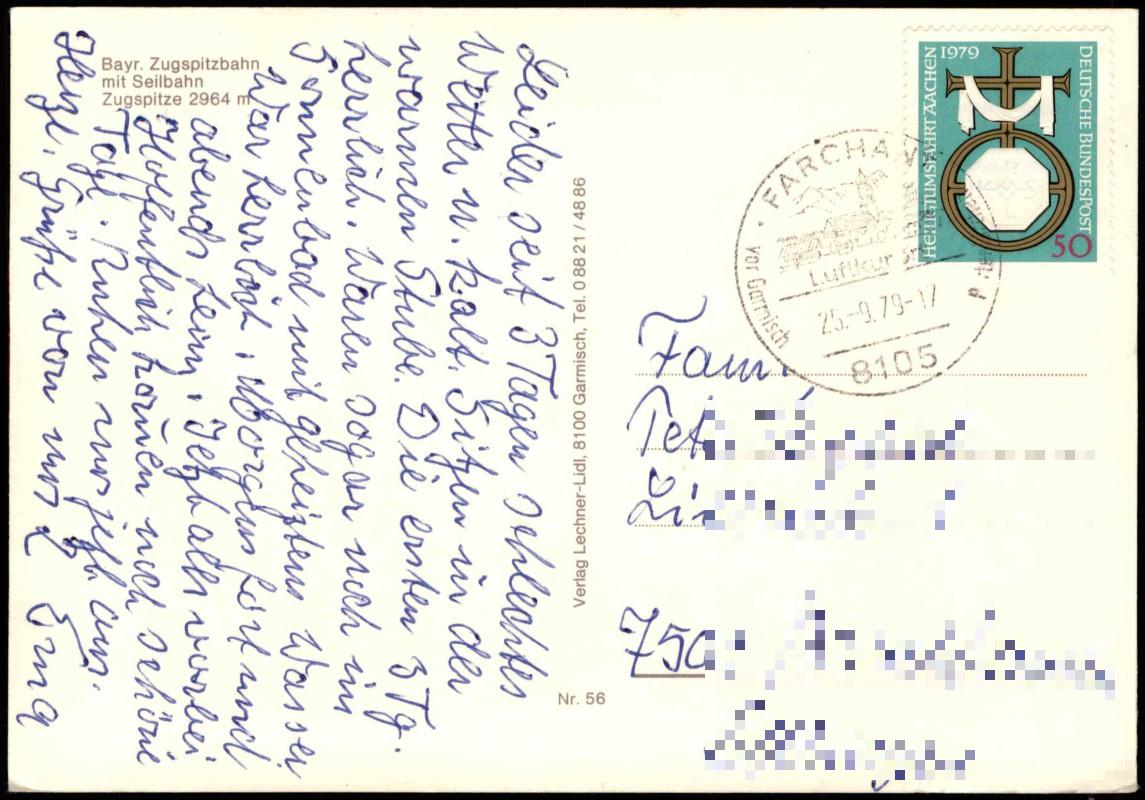 Bayr. Zugspitzbahn
mit Seilbahn
Zugspitze 2964 m
Leider seit 3 Tagen schlechtes
Wetter u. kalt. Sitzen in der
warmen Stube. Die ersten 3 Tg.
herrlich. Waren sogar noch im
Sonnenbad mit geheiztem Wasser
War herrlich. Morgens fort und
abends heim. Jetzt alls vorbei
Hoffentlich kommen noch schöne
Tage. Ruhen uns jetzt aus.
Herzl. Grüße von uns 2
Verlag Lechner-Lidl, 8100 Garmisch, Tel. 0 88 21 / 48 86
Nr. 56
1979
DEUTSCHE BUNDESPOST
HEILIGTUMSFAHRT AACHEN
50
FARCHA
Luftkur
vor Garmisch
25.-9.79-17
8105
Fam.
750